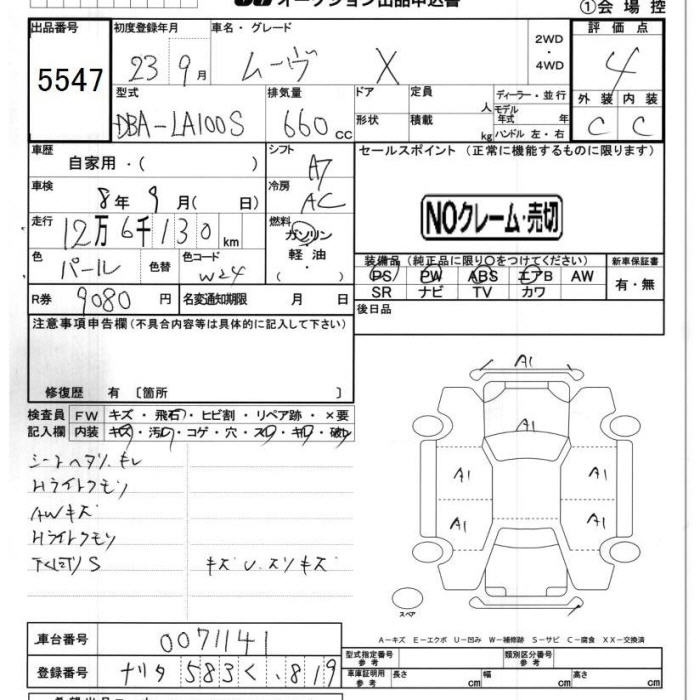 オークション出品申込書
①会場控
出品番号 初度登録年月 車名・グレード 評価点
5547 23 9月 ムーヴ X 2WD・4WD 4
型式 排気量 ドア 定員 人 ディーラー・並行 外装 内装
DBA-LA100S 660cc 形状 積載 kg モデル年式 年 ハンドル 左・右 C C
車歴 自家用・( ) シフト A7 セールスポイント (正常に機能するものに限ります)
車検 8年 9月( 日) 冷房 AC
NOクレーム・売切
走行 12万6千130km 燃料 ガソリン 軽油・( )
色 パール 色替 色コード W24
装備品(純正品に限り○をつけてください) 新車保証書
PS PW ABS エアB AW 有・無
SR ナビ TV カワ
R券 9080円 名変通知期限 月 日 後日品
注意事項申告欄(不具合内容等は具体的に記入して下さい)
修復歴 有 〔箇所 〕
検査員記入欄 FW キズ・飛石・ヒビ割・リペア跡・×要
内装 キズ・汚レ・コゲ・穴・スレ・キレ・破レ
シートヘタリ、キレ
Hライトクモリ
AWキズ
Hライトクモリ
S キズU、スリキズ
A1
A1
A1 A1
A1 A1
スペア
A-キズ E-エクボ U-凹み W-補修跡 S-サビ C-腐食 XX-交換済
車台番号 0071141
型式指定番号 参考 類別区分番号 参考
登録番号 ナリタ 583 く 819
車庫証明用 参考 長さ cm 幅 cm 高さ cm